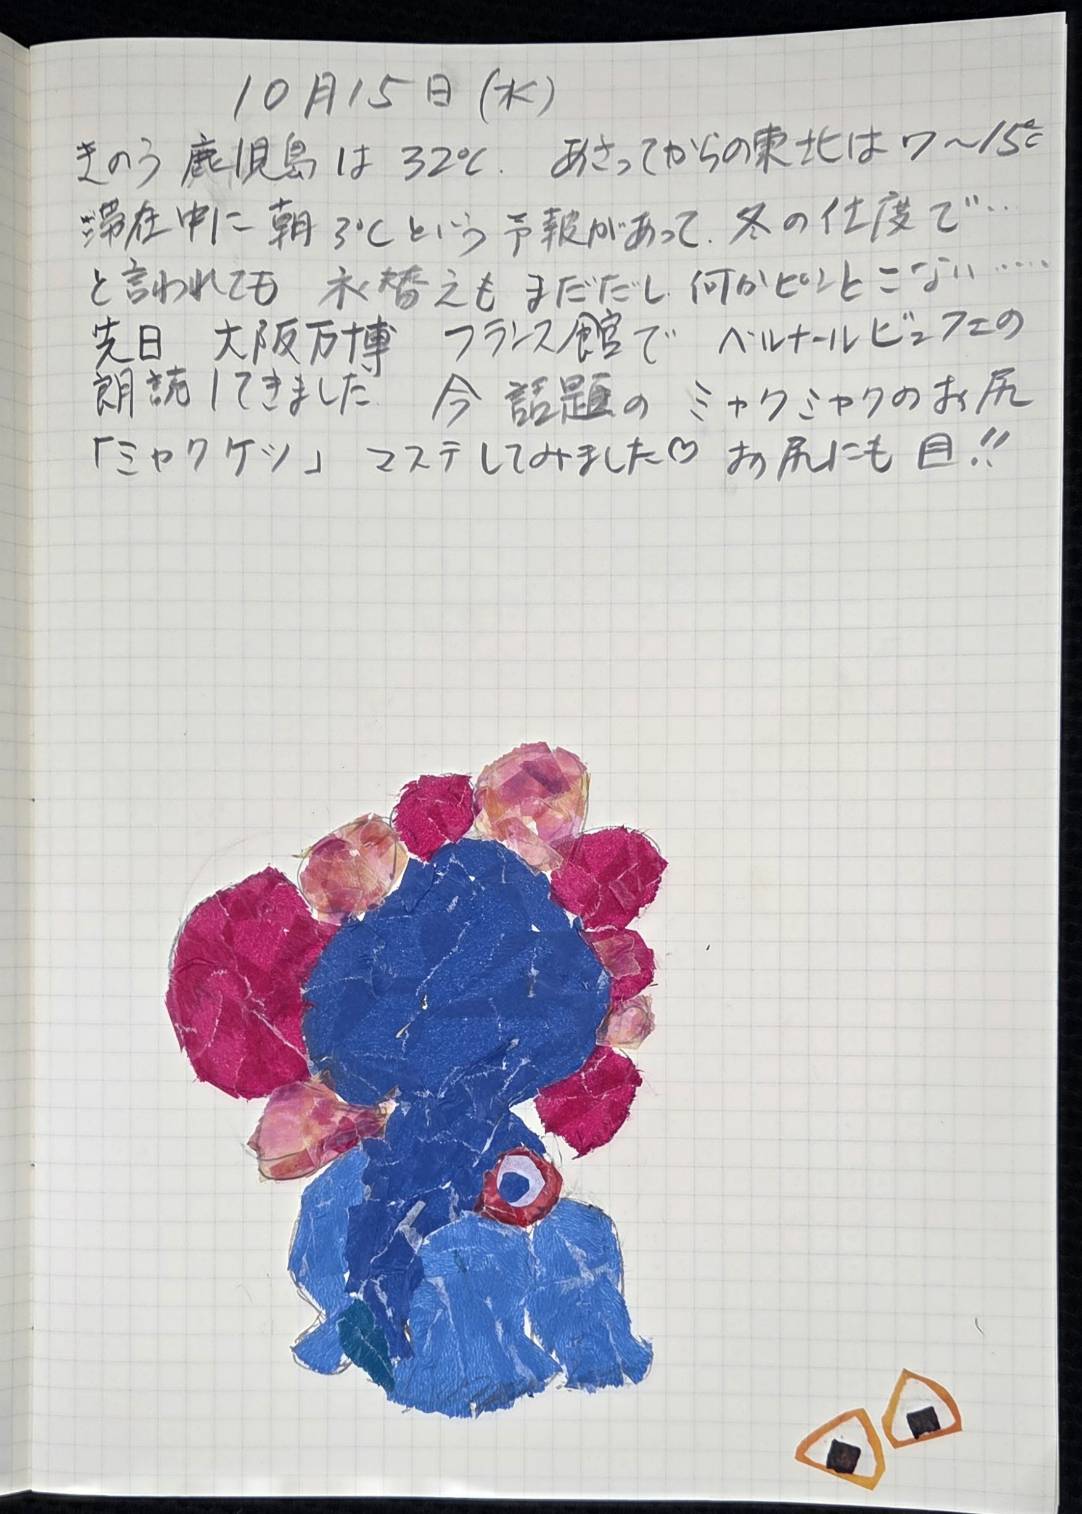 10月15日(水)
きのう 鹿児島は 32℃. あさってからの東北は 7〜15℃
滞在中に 朝 3℃という予報があって、冬の仕度で‥
と言われても 衣替えも まだだし 何かピンとこない‥‥
先日 大阪万博 フランス館で ベルナールビュフェの
朗読してきました 今 話題の ミャクミャクのお尻
「ミャクケツ」 マステしてみました♡ お尻にも 目!!